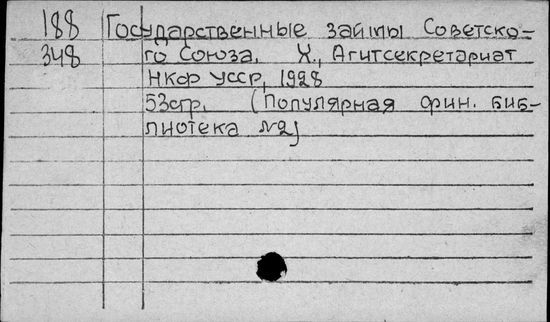 188 Государственные займы Советско-
348 го Союза. Х., Агитсекретариат
НКФ УССР, 1928
53стр. (Популярная фин. биб-
лиотека №2)